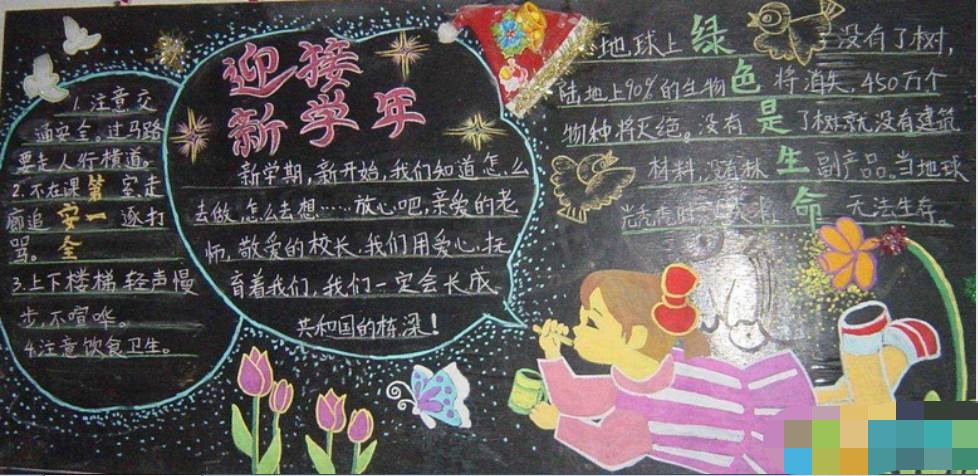 1.注意交
通安全。过马路
要走人行横道。
2.不在课室走
廊追逐打
骂。
3.上下楼梯轻声慢
步,不喧哗。
4.注意饮食卫生。
安全第一
迎接
新学年
新学期,新开始,我们知道怎么
去做,怎么去想……放心吧,亲爱的老
师,敬爱的校长,我们用爱心,抚
育着我们,我们一定会长成
共和国的栋梁!
绿色是生命
地球上 没有了树,
陆地上90%的生物将消失,450万个
物种将灭绝。没有了树就没有建筑
材料,没有林副产品。当地球
无法生存。